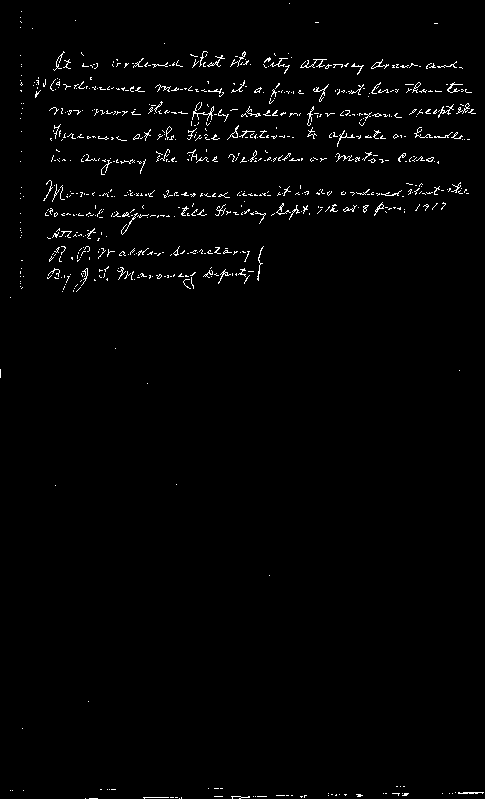 It is ordered that the City attorney draw and
Ordinance making it a fine of not less than ten
nor more than fifty Dollars for anyone except the
Firemen at the Fire Station to operate or handle
in anyway the Fire Vehickles or Motor Cars.
Moved and seconed and it is so ordered that the
Council adjourn till Friday Sept. 7th at 8 P.m. 1917
Attest:
R. P. Walker Secretary
By J. T. Maroney Deputy